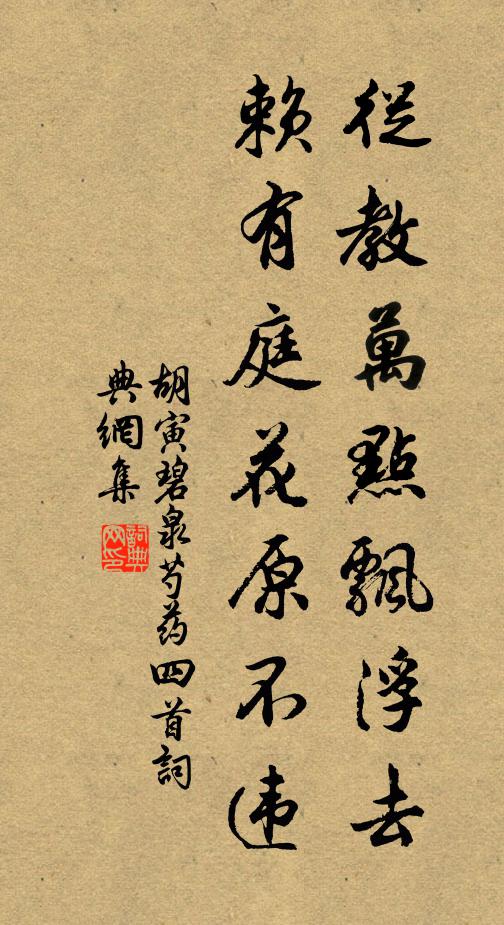 從教萬點飄浮去
賴有庭花原不违
胡寅碧泉芍药四首詞
典網集
詞典
网印